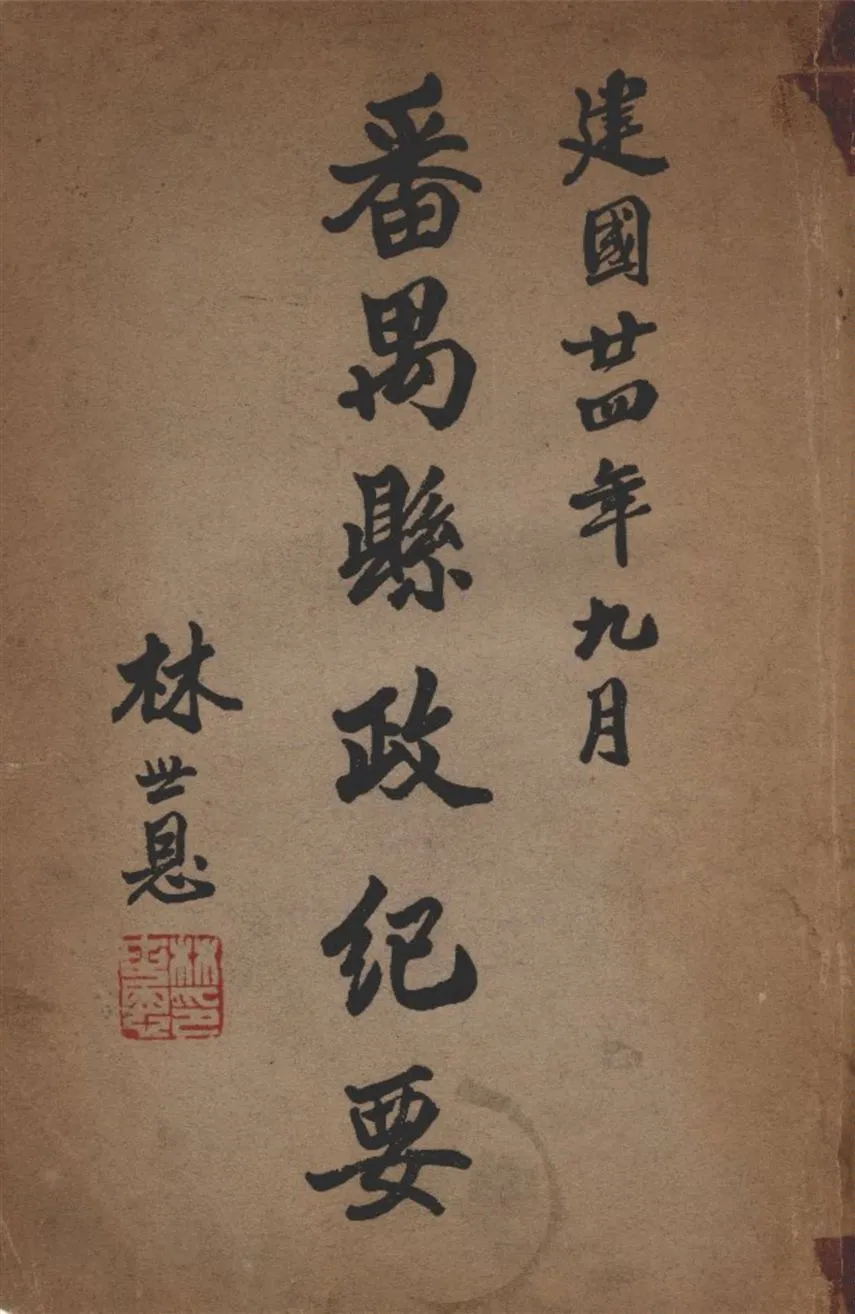 建國廿四年九月
番禺縣政紀要
林世恩